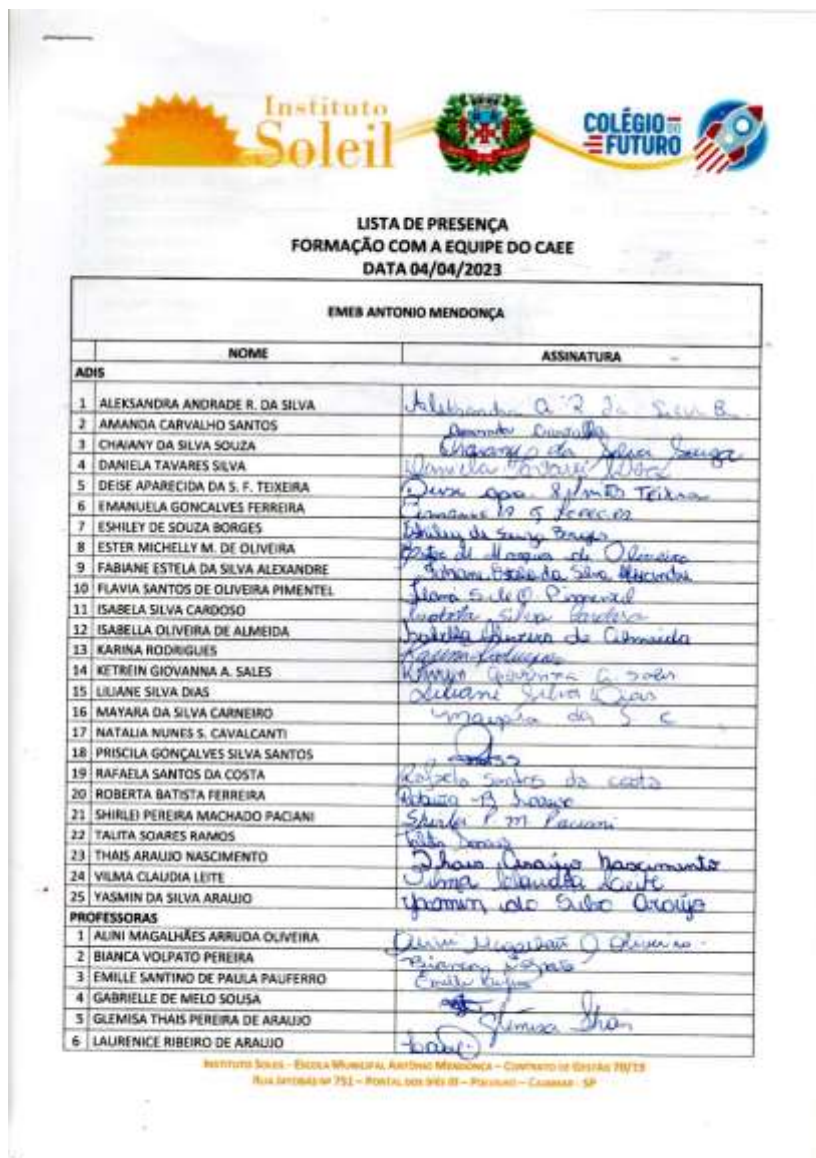 Instituto
Soleil
COLÉGIO DO
FUTURO
LISTA DE PRESENÇA
FORMAÇÃO COM A EQUIPE DO CAEE
DATA 04/04/2023
EMEB ANTONIO MENDONÇA
NOME ASSINATURA
ADIS
1 ALEKSANDRA ANDRADE R. DA SILVA
2 AMANDA CARVALHO SANTOS Amanda Carvalho
3 CHAIANY DA SILVA SOUZA Chaiany da Silva Souza
4 DANIELA TAVARES SILVA Daniela Tavares Silva
5 DEISE APARECIDA DA S. F. TEIXEIRA Deise apa. Teixeira
6 EMANUELA GONCALVES FERREIRA
7 ESHILEY DE SOUZA BORGES Eshiley de Souza Borges
8 ESTER MICHELLY M. DE OLIVEIRA de Oliveira
9 FABIANE ESTELA DA SILVA ALEXANDRE Fabiane Estela da Silva Alexandre
10 FLAVIA SANTOS DE OLIVEIRA PIMENTEL Flavia S. de O. Pimentel
11 ISABELA SILVA CARDOSO Isabela Silva Cardoso
12 ISABELLA OLIVEIRA DE ALMEIDA Isabella Oliveira de Almeida
13 KARINA RODRIGUES Karina Rodrigues
14 KETREIN GIOVANNA A. SALES Ketrein Giovanna A. Sales
15 LILIANE SILVA DIAS Liliane Silva Dias
16 MAYARA DA SILVA CARNEIRO Mayara da S C
17 NATALIA NUNES S. CAVALCANTI
18 PRISCILA GONÇALVES SILVA SANTOS
19 RAFAELA SANTOS DA COSTA Rafaela Santos da costa
20 ROBERTA BATISTA FERREIRA Roberta B
21 SHIRLEI PEREIRA MACHADO PACIANI Shirlei P M Paciani
22 TALITA SOARES RAMOS Talita Soares
23 THAIS ARAUJO NASCIMENTO Thais Araújo Nascimento
24 VILMA CLAUDIA LEITE Vilma Claudia Leite
25 YASMIN DA SILVA ARAUJO Yasmin da Silva Araújo
PROFESSORAS
1 ALINI MAGALHÃES ARRUDA OLIVEIRA
2 BIANCA VOLPATO PEREIRA Bianca Volpato
3 EMILLE SANTINO DE PAULA PAUFERRO Emille
4 GABRIELLE DE MELO SOUSA
5 GLEMISA THAIS PEREIRA DE ARAUJO Glemisa Thais
6 LAURENICE RIBEIRO DE ARAUJO
INSTITUTO SOLEIL – ESCOLA MUNICIPAL ANTÔNIO MENDONÇA – CONTRATO DE GESTÃO 70/19
RUA JATOBÁS Nº 751 – PORTAL DOS IPÊS III – POLVILHO – CAJAMAR - SP